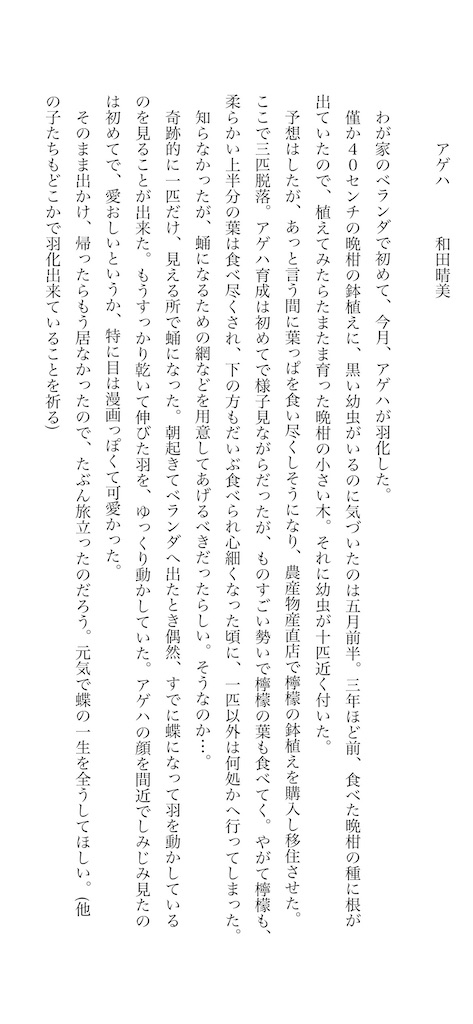 アゲハ　　和田晴美
わが家のベランダで初めて、今月、アゲハが羽化した。
僅か４０センチの晩柑の鉢植えに、黒い幼虫がいるのに気づいたのは五月前半。三年ほど前、食べた晩柑の種に根が
出ていたので、植えてみたらたまたま育った晩柑の小さい木。それに幼虫が十匹近く付いた。
予想はしたが、あっと言う間に葉っぱを食い尽くしそうになり、農産物産直店で檸檬の鉢植えを購入し移住させた。
ここで三匹脱落。アゲハ育成は初めてで様子見ながらだったが、ものすごい勢いで檸檬の葉も食べてく。やがて檸檬も、
柔らかい上半分の葉は食べ尽くされ、下の方もだいぶ食べられ心細くなった頃に、一匹以外は何処かへ行ってしまった。
知らなかったが、蛹になるための網などを用意してあげるべきだったらしい。そうなのか…。
奇跡的に一匹だけ、見える所で蛹になった。朝起きてベランダへ出たとき偶然、すでに蝶になって羽を動かしている
のを見ることが出来た。もうすっかり乾いて伸びた羽を、ゆっくり動かしていた。アゲハの顔を間近でしみじみ見たの
は初めてで、愛おしいというか、特に目は漫画っぽくて可愛かった。
そのまま出かけ、帰ったらもう居なかったので、たぶん旅立ったのだろう。元気で蝶の一生を全うしてほしい。(他
の子たちもどこかで羽化出来ていることを祈る)